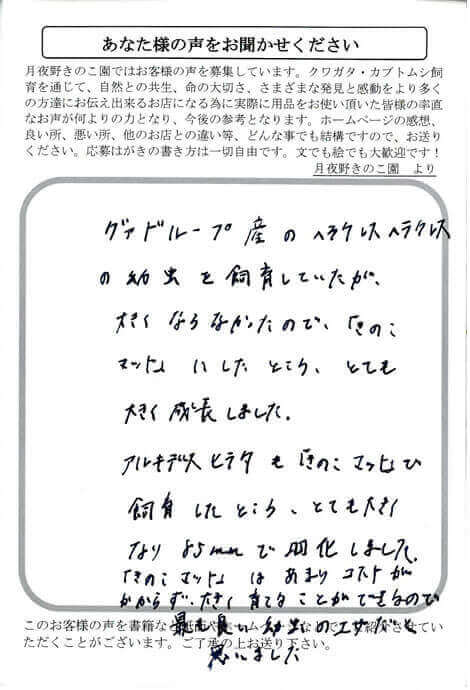 あなた様の声をお聞かせください
月夜野きのこ園ではお客様の声を募集しています。クワガタ・カブトムシ飼
育を通じて、自然との共生、命の大切さ、さまざまな発見と感動をより多く
の方達にお伝え出来るお店になる為に実際に用品をお使い頂いた皆様の率直
なお声が何よりの力となり、今後の参考となります。ホームページの感想、
良い所、悪い所、他のお店との違い等、どんな事でも結構ですので、お送り
ください。応募はがきの書き方は一切自由です。文でも絵でも大歓迎です！
月夜野きのこ園　より
グァドループ産のヘラクレスヘラクレス
の幼虫を飼育していたが、
大きくならなかったので、「きのこ
マット」にしたところ、とても
大きく成長しました。
アルキデスヒラタも「きのこマット」で
飼育したところ、とても大きく
なり85mmで羽化しました。
「きのこマット」はあまりコストが
かからず、大きく育てることができるので
最も良い幼虫のエサだと
思いました
このお客様の声を書籍など
ご紹介させてい
ただくことがございます。ご了承の上お送り下さい。